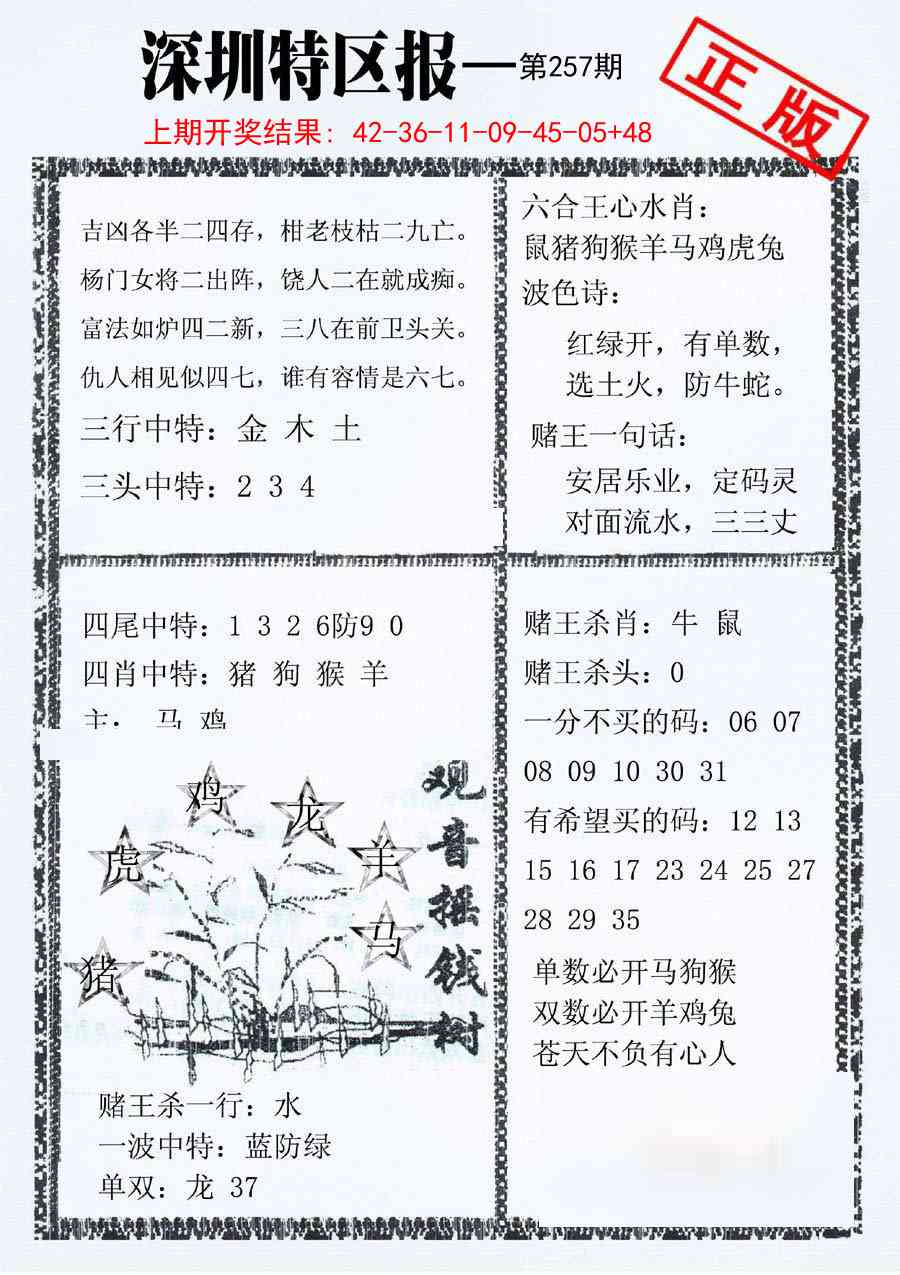 深圳特区报—第257期
正版
上期开奖结果: 42-36-11-09-45-05+48
吉凶各半二四存，柑老枝枯二九亡。
杨门女将二出阵，饶人二在就成痴。
富法如炉四二新，三八在前卫头关。
仇人相见似四七，谁有容情是六七。
三行中特：金 木 土
三头中特：2 3 4
六合王心水肖：
鼠猪狗猴羊马鸡虎兔
波色诗：
红绿开，有单数，
选土火，防牛蛇。
赌王一句话：
安居乐业，定码灵
对面流水，三三丈
四尾中特：1 3 2 6防9 0
四肖中特：猪 狗 猴 羊
主： 马 鸡
鸡
龙
虎
羊
马
猪
观音摇钱树
赌王杀一行：水
一波中特：蓝防绿
单双：龙 37
赌王杀肖：牛 鼠
赌王杀头：0
一分不买的码：06 07
08 09 10 30 31
有希望买的码：12 13
15 16 17 23 24 25 27
28 29 35
单数必开马狗猴
双数必开羊鸡兔
苍天不负有心人